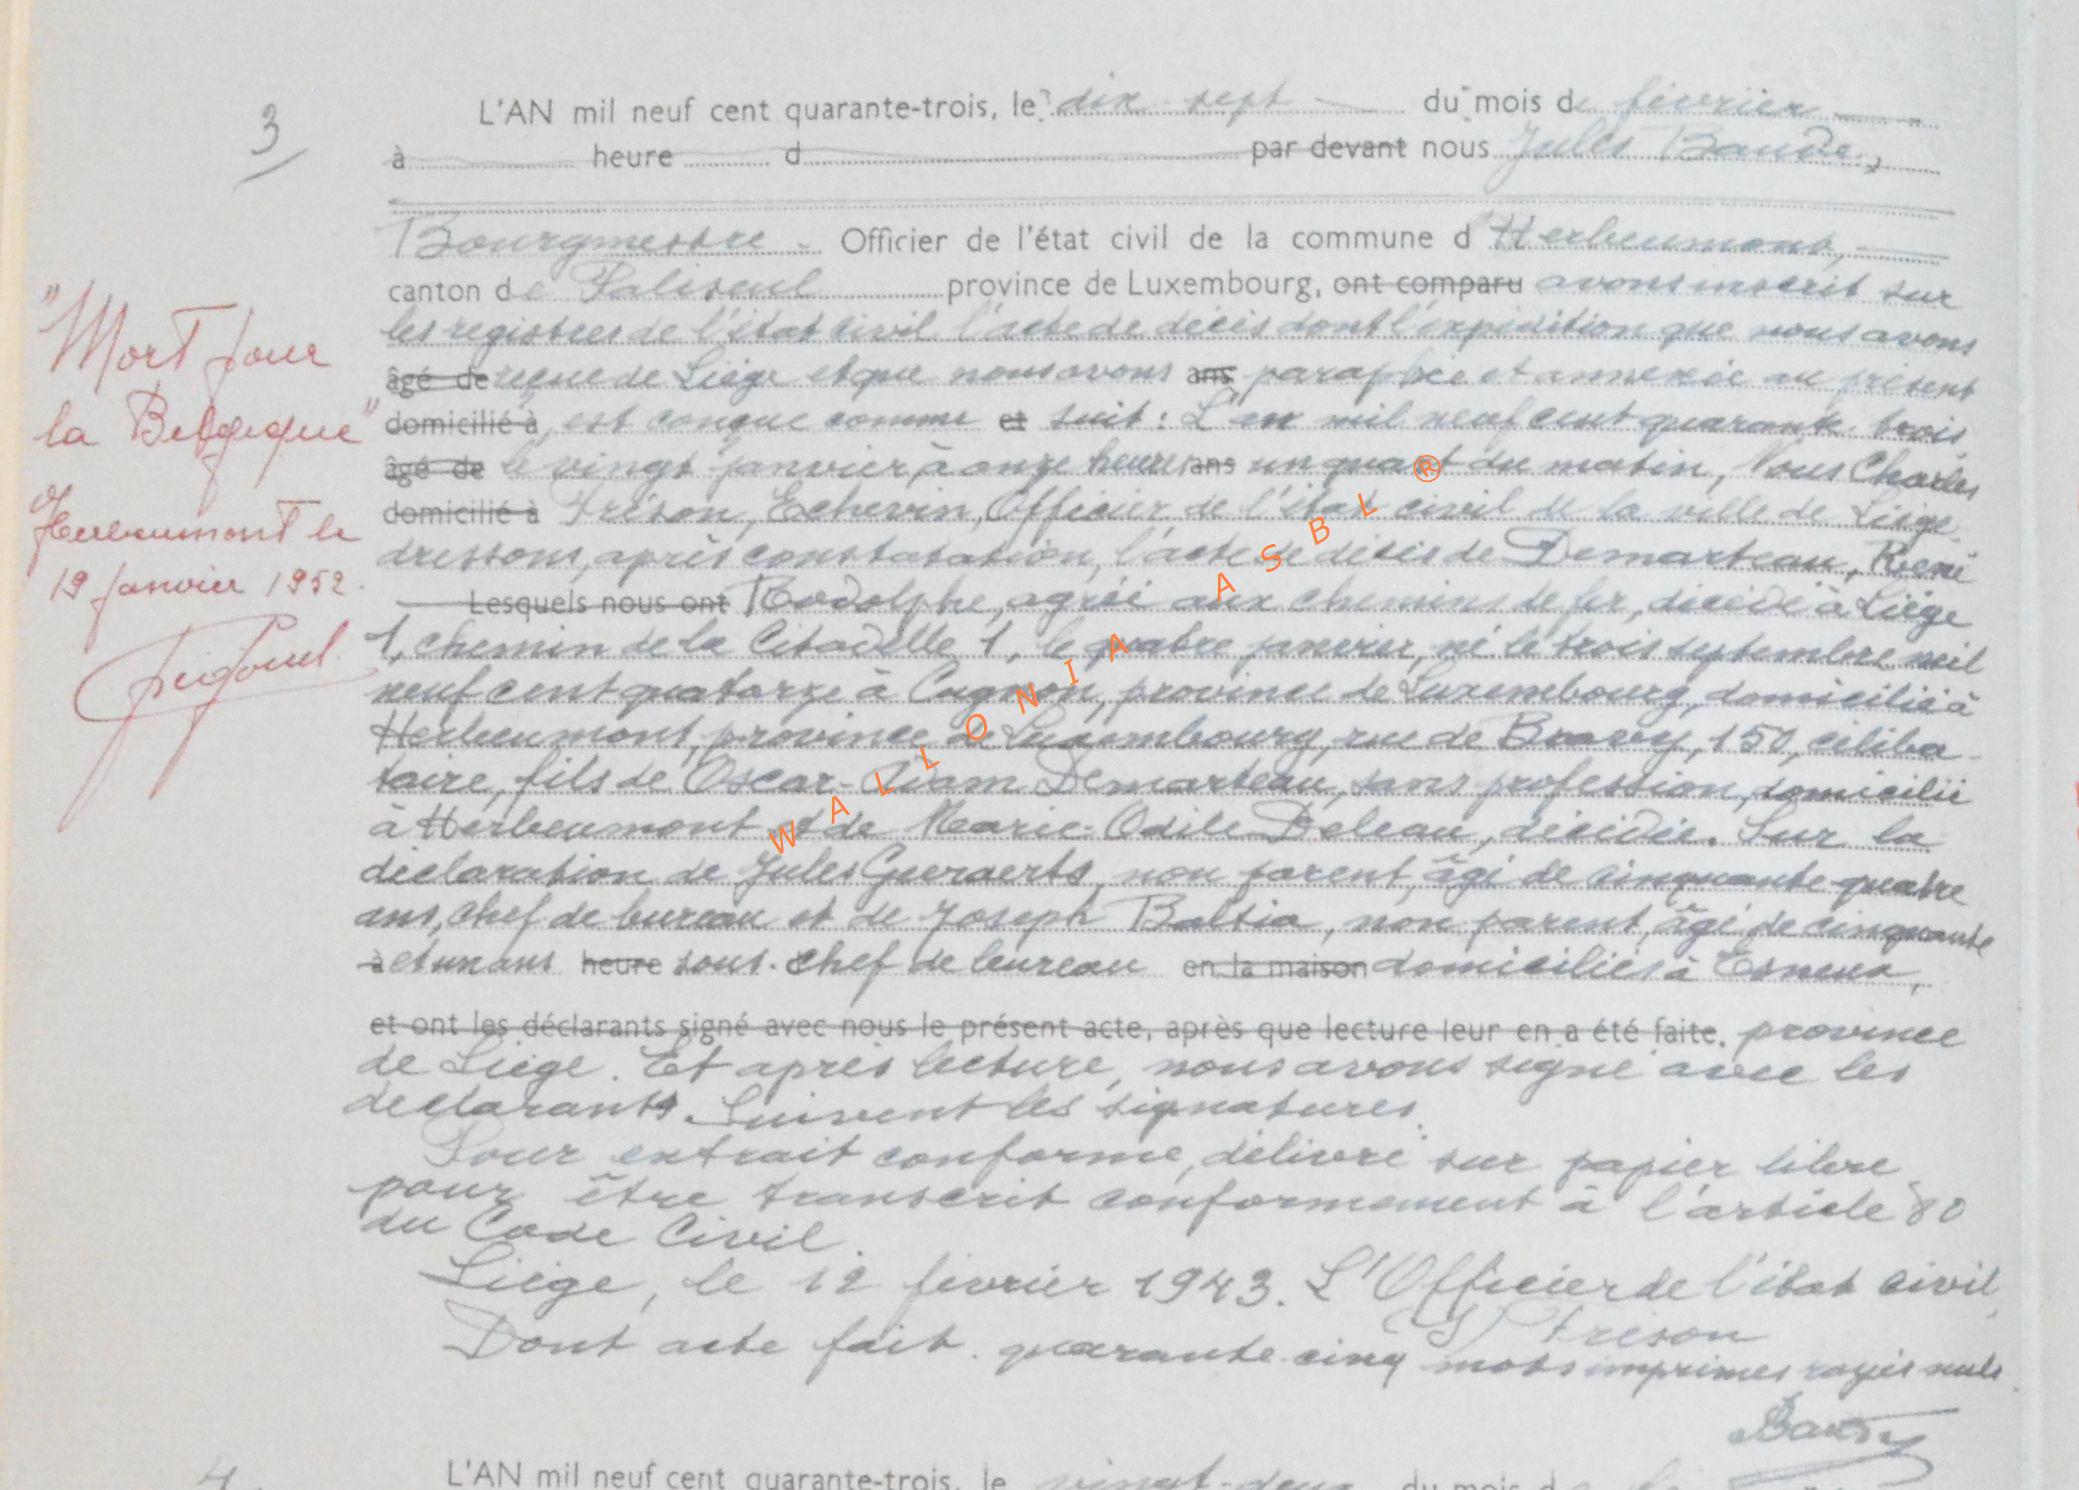 3
L'AN mil neuf cent quarante-trois, le dix-sept du mois de février
à heure d par devant nous Jules Baude,
Bourgmestre - Officier de l'état civil de la commune d'Herbeumont,
canton de Paliseul province de Luxembourg, ont comparu avons inscrit sur
les registres de l'état civil l'acte de décès dont l'expédition que nous avons
âgé de reçue de Liège et que nous avons ans paraphée et annexée au présent
domicilié à est conçue comme et suit : L'an mil neuf cent quarante-trois
âgé de le vingt janvier, à onze heures ans un quart du matin, Nous Charles
domicilié à Fréson, Echevin, Officier de l'état civil de la ville de Liège
dressons, après constatation, l'acte de décès de Demarteau, René
Lesquels nous ont Rodolphe, agréé aux chemins de fer, décédé à Liège
1, chemin de la Citadelle 1, le quatre janvier, né le trois septembre mil
neuf cent quatorze à Cugnon, province de Luxembourg, domicilié à
Herbeumont, province de Luxembourg, rue de Bravy, 150, céliba-
taire, fils de Oscar-Adam Demarteau, sans profession, domicilié
à Herbeumont et de Marie-Odile Deleau, décédée. Sur la
déclaration de Jules Gueraerts, non parent, âgé de cinquante quatre
ans, chef de bureau et de Joseph Baltia, non parent, âgé de cinquante
à et un ans heure sous-chef de bureau en la maison domiciliés à Esneux,
et ont les déclarants signé avec nous le présent acte, après que lecture leur en a été faite. province
de Liège. Et après lecture, nous avons signé avec les
déclarants. Suivent les signatures.
Pour extrait conforme, délivré sur papier libre
pour être transcrit conformément à l'article 80
du Code Civil.
Liège, le 12 février 1943. L'Officier de l'état civil,
(s) Fréson
Dont acte fait. quarante-cinq mots imprimés rayés nuls.
"Mort pour
la Belgique"
Herbeumont le
19 Janvier 1952.
WALLONIA ASBL ®
4.
L'AN mil neuf cent quarante-trois, le vingt-deux du mois de